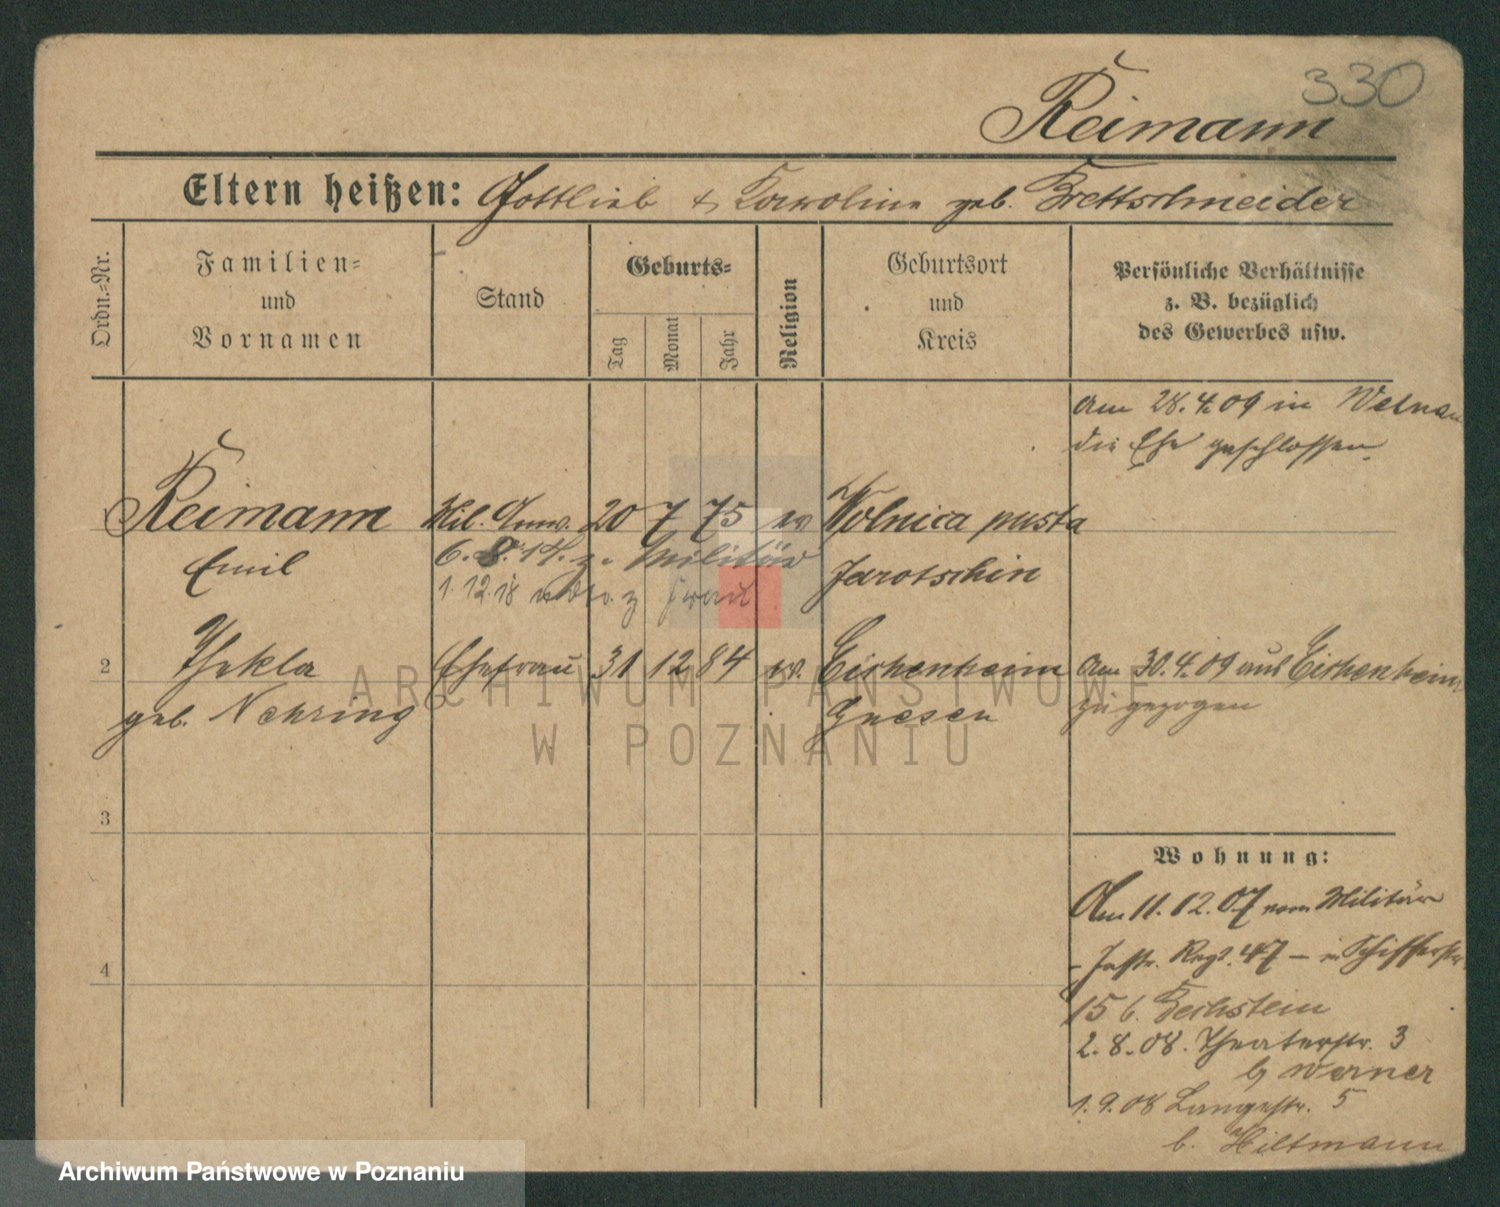 330
Reimann
Eltern heißen: Gottlieb & Karoline geb. Brettschneider
Ordn.-Nr.
Familien-
und
Vornamen
Stand
Geburts-
Tag
Monat
Jahr
Religion
Geburtsort
und
Kreis
Persönliche Verhältnisse
z. B. bezüglich
des Gewerbes usw.
am 28.4.09 in Welnau
die Ehe geschlossen.
1 Reimann Mil. Anw. 20 7 75 ev Wolnica pusta
Emil 6.8.14. z. Militär Jarotschin
1.12.18 z
2 Thekla Ehefrau 31 12 84 ev. Eichenheim am 30.4.09 aus Eichenheim
geb. Nehring Gnesen zugezogen
3
Wohnung:
Am 11.12.07 vom Militär
- Inftr. Regt. 47 - n. Schifferstr.
4
15 b. Bechstein
2.8.08. Theaterstr. 3
b Werner
1.9.08 Langestr. 5
b. Hiltmann
ARCHIWUM PAŃSTWOWE
W POZNANIU
Archiwum Państwowe w Poznaniu